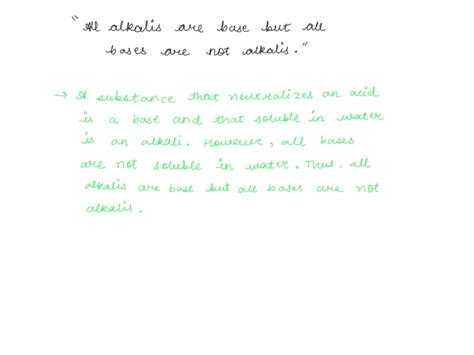 "All alkalis are base but all
bases are not alkalis."
→ A substance that neutralizes an acid
is a base and that soluble in water
is an alkali. However, all bases
are not soluble in water. Thus, all
alkalis are base but all bases are not
alkalis.